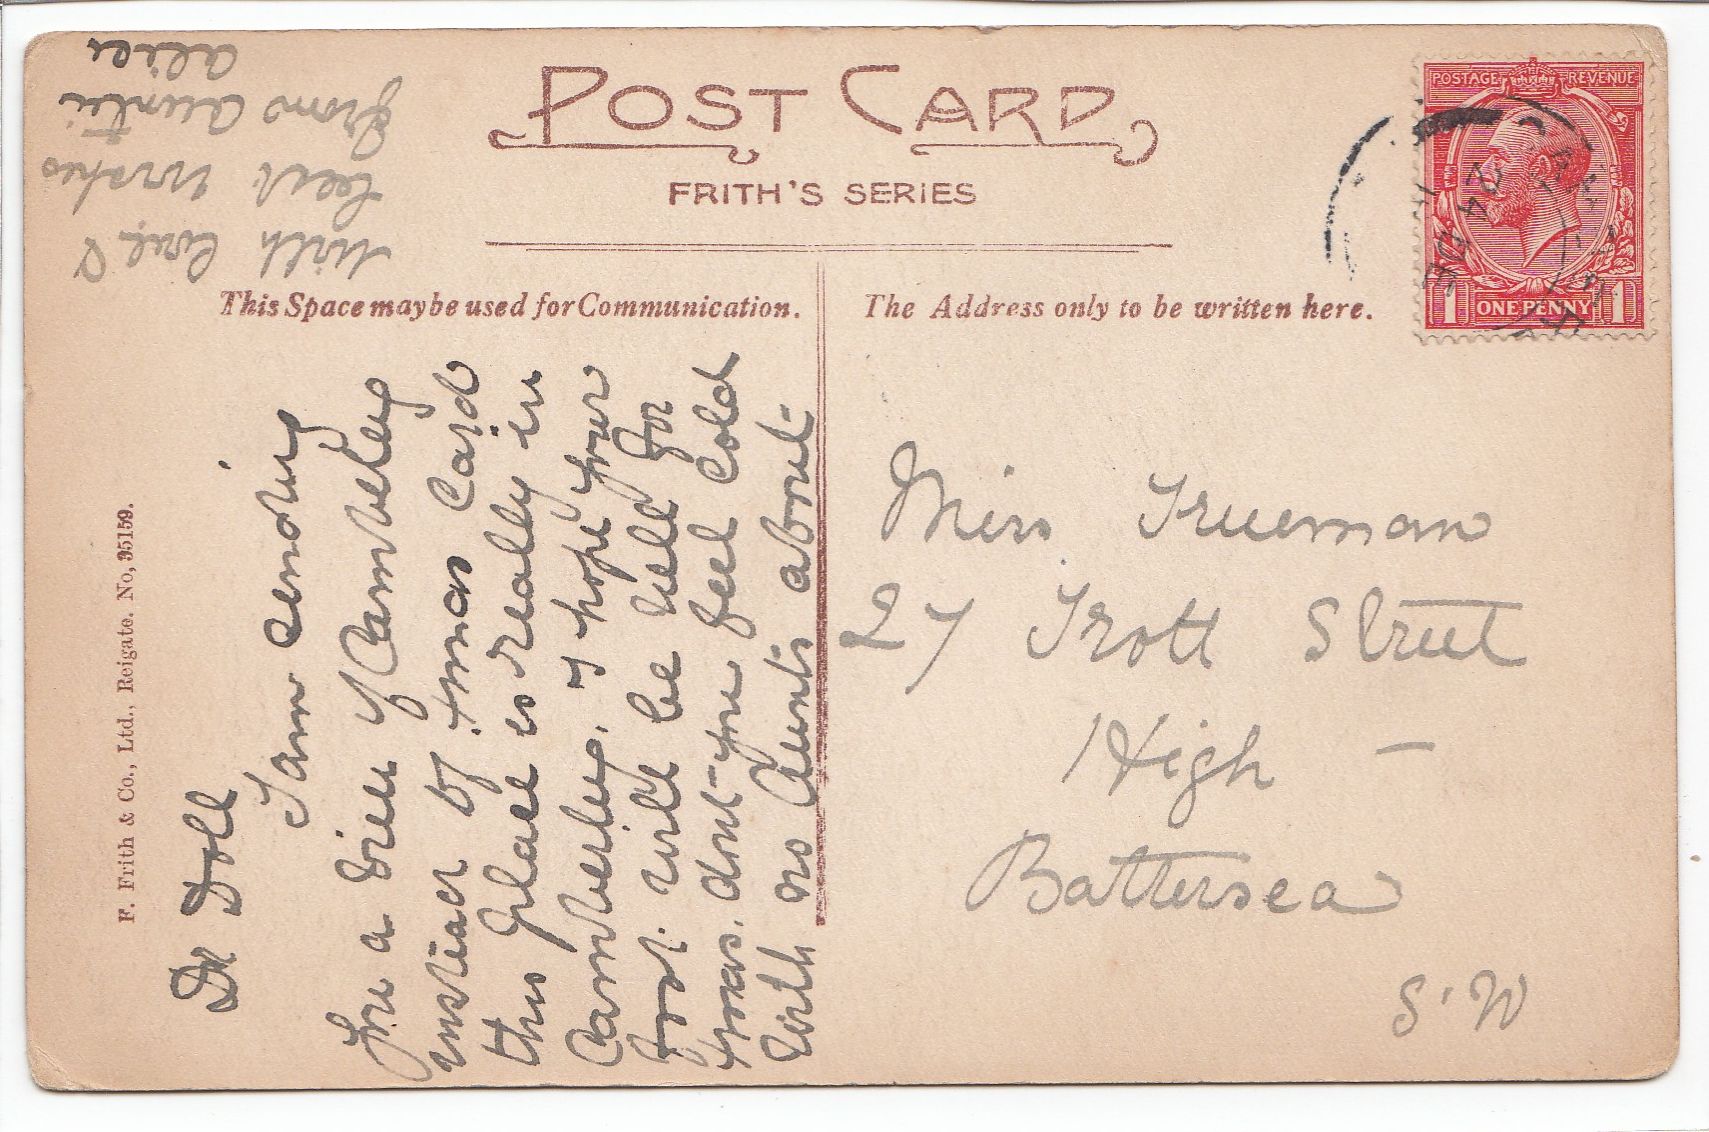 POST CARD
FRITH'S SERIES
This Space may be used for Communication.
The Address only to be written here.
POSTAGE REVENUE
1 ONE PENNY 1
F. Frith & Co., Ltd., Reigate. No, 35159.
Dr Doll
I am sending
you a view of Camberley
instead of Xmas Card
this place is really in
Camberley. I hope your
foot will be well for
Xmas. dont you feel Cold
with no Auntis about
with love &
best wishes
from Auntie
alice
Miss Trueman
27 Trott Street
High
Battersea
S.W
24 DE